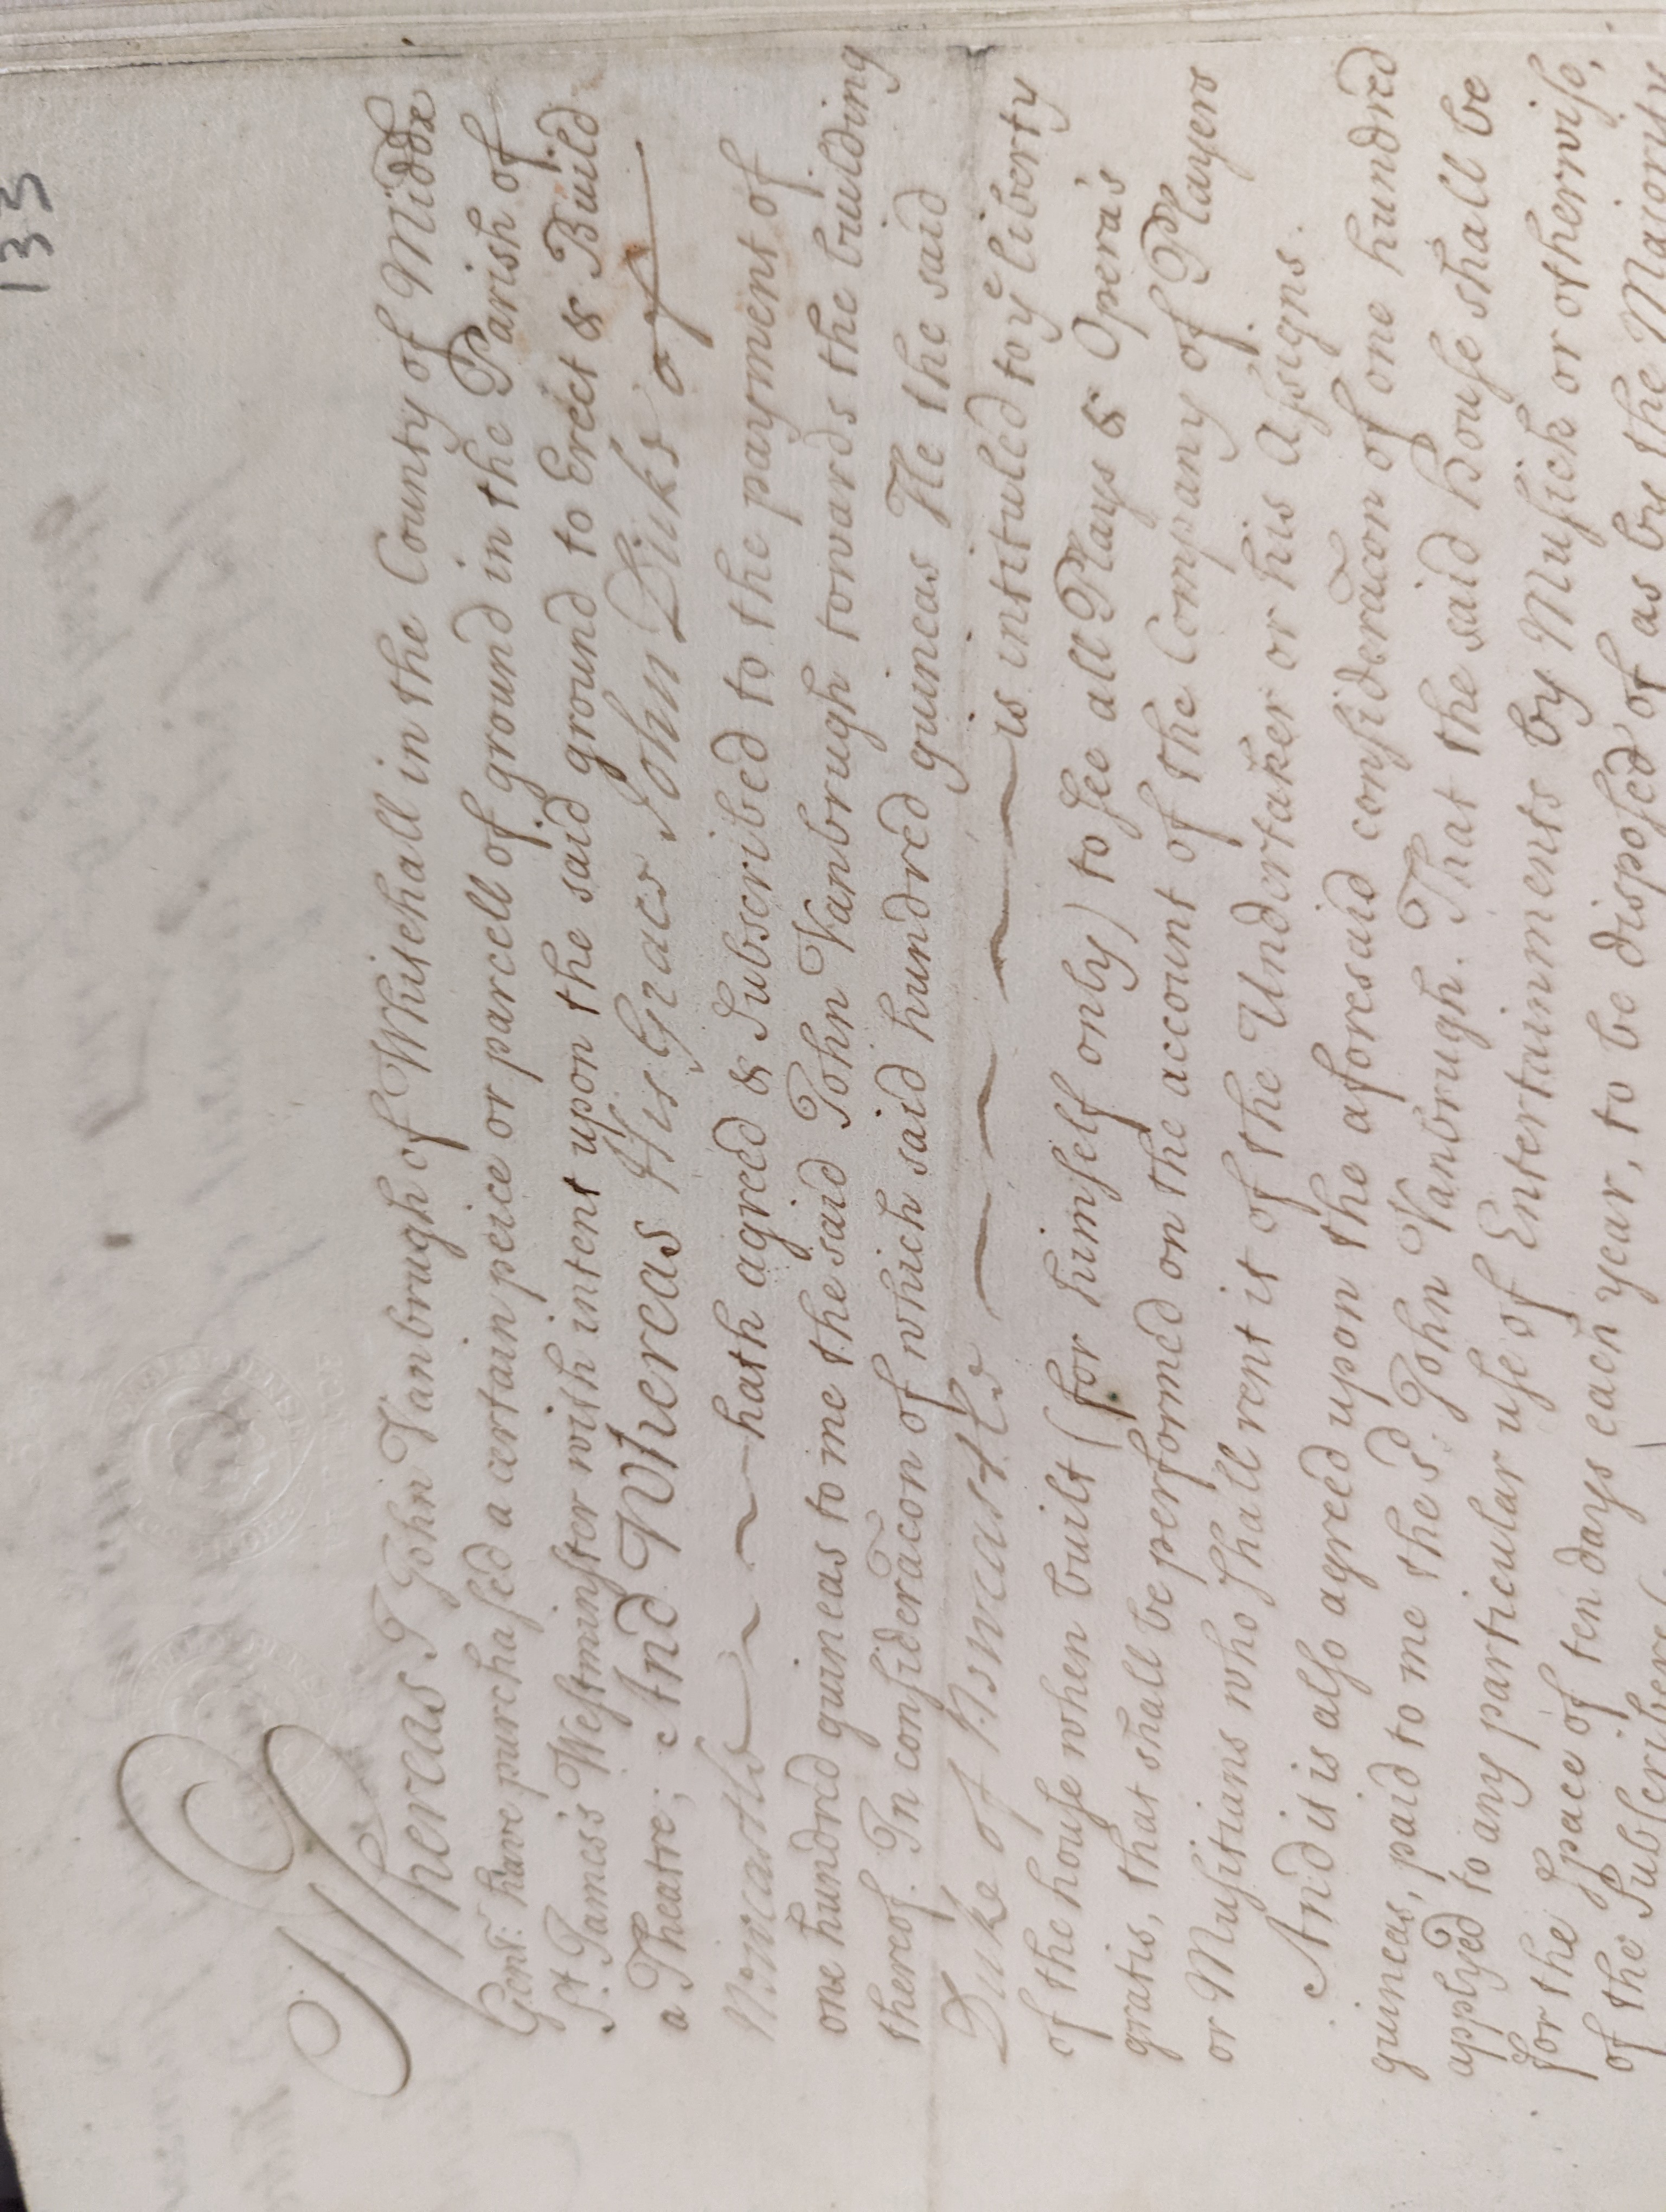 133
Whereas I John Vanbrugh of Whitehall in the County of Middx
Gent: have purchased a certain peice or parcell of ground in the Parish of
St. James's Westminster with intent upon the said ground to Erect & Build
a Theatre; And Whereas His Grace John Duke of
Newcastle hath agreed & Subscribed to the payment of
one hundred guineas to me the said John Vanbrugh towards the building
thereof. In consideracon of which said hundred guineas He the said
Duke of Newcastle is intituled to ye liberty
of the house when built (for himself only) to see all Plays & Opera's
gratis, that shall be performed on the account of the Company of Players
or Musitians who shall rent it of the Undertaker or his Assigns.
And it is also agreed upon the aforesaid consideracon of one hundred
guineas, paid to me the sd. John Vanbrugh. That the said House shall be
applyed to any particular use of Entertainments by Musick or otherwise,
for the space of ten days each year, to be disposed of as by the Majority
of the Subscribers